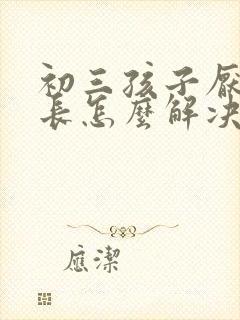 初三孩子厭
長怎麼解决
應潔